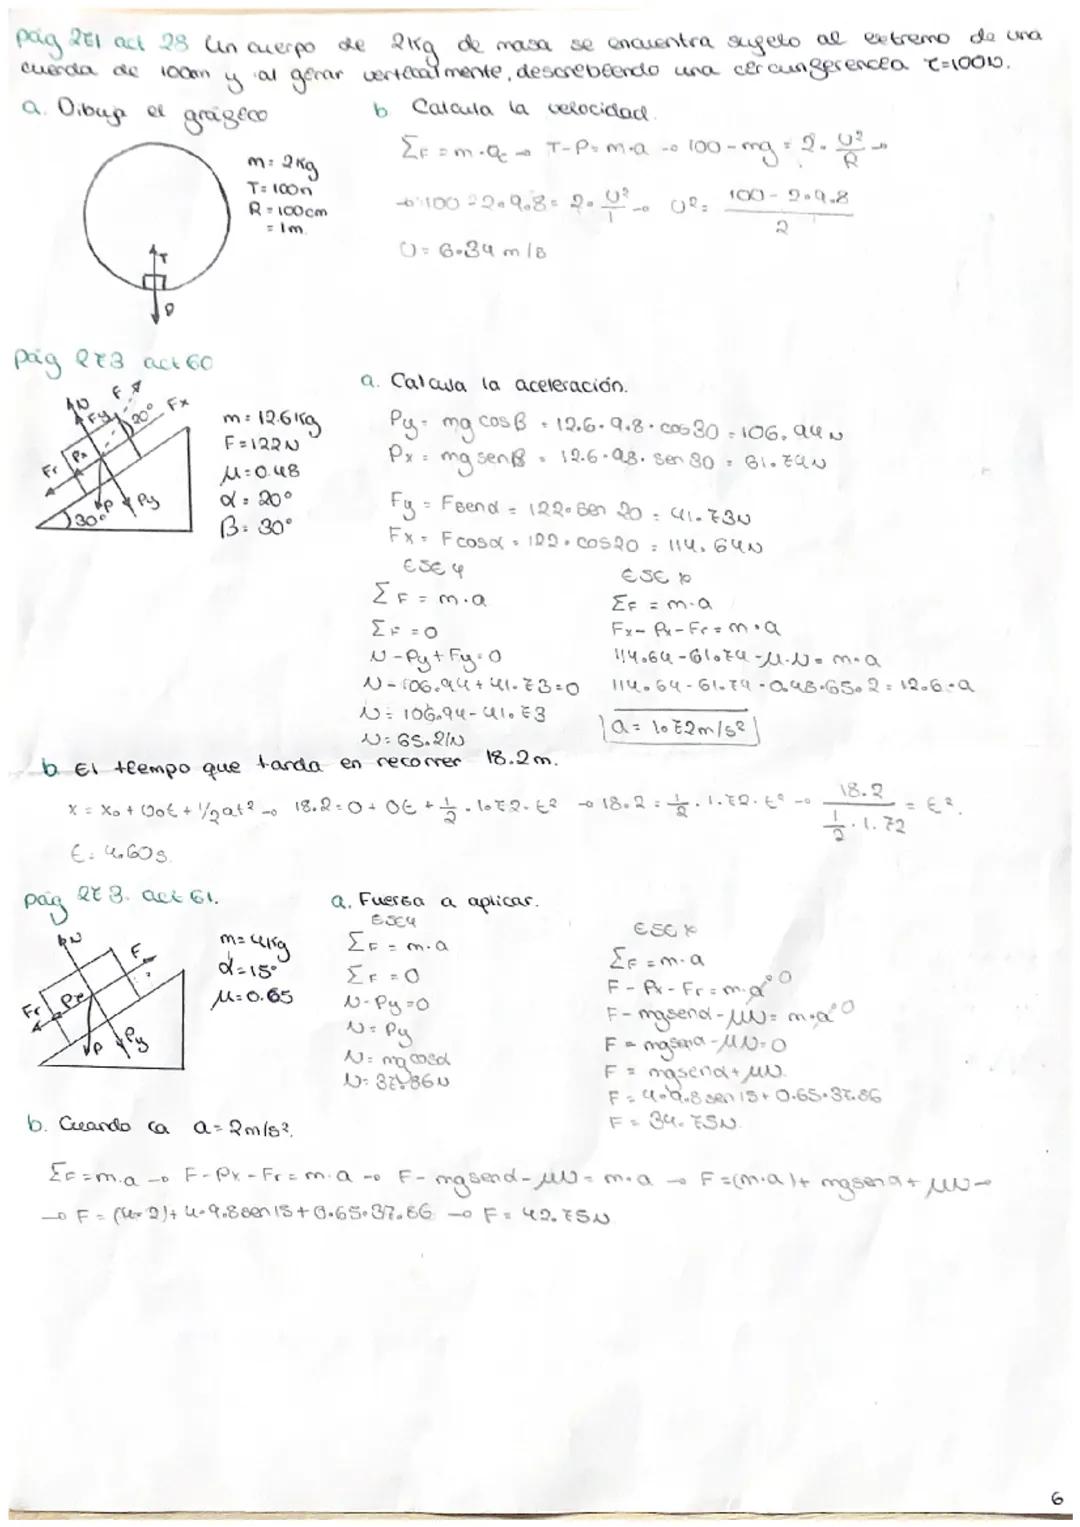 pág 271 act 28 Un cuerpo de 2kg de masa se encuentra sugeto al extremo de una
cuerda de 100cm y al girar verticalmente, describiendo una circungerencia T=100N.
a. Dibuja el grágico
m= 2kg
T= 100n
R= 100cm
= 1m.
T
P
b Calcula la velocidad.
ΣF = m·ac → T-P= m·a → 100-mg = 2· U²/R →
→ 100-2·9.8= 2· U²/1 → U²= 100-2·9.8 / 2
U= 6.34 m/s
pág 273 act 60
N F Fy 20° Fx
Fr Px
P Py
30°
m= 12.6kg
F=122N
μ=0.48
α= 20°
β= 30°
a. Calcula la aceleración.
Py= mg cosβ = 12.6·9.8·cos30 = 106.94N
Px = mg senβ = 12.6·9.8·sen30 = 61.74N
Fy = Fsenα = 122·sen 20 = 41.73N
Fx = Fcosα = 122·cos20 = 114.64N
EJE y
ΣF = m·a
ΣF = 0
N-Py+Fy=0
N-106.94+41.73=0
N= 106.94-41.73
N= 65.21N
EJE x
ΣF = m·a
Fx-Px-Fr = m·a
114.64-61.74-μ·N= m·a
114.64-61.74-0.48·65.2 = 12.6·a
a= 1.72m/s²
b. El tiempo que tarda en recorrer 18.2m.
x = x₀ + v₀t + 1/2at² → 18.2=0+0t+1/2·1.72·t² → 18.2=1/2·1.72·t² → 18.2 / 1/2·1.72 = t².
t= 4.60s.
pág 273. act 61.
N F
Fr Px
P Py
m= 4kg
α=15°
μ=0.65
a. Fuersa a aplicar.
EJE y
ΣF = m·a
ΣF = 0
N-Py=0
N= Py
N= mgcosα
N= 37.86N
EJE x
ΣF = m·a
F-Px-Fr = m·a⁰
F-mgsenα-μN= m·a⁰
F - mgsenα-μN=0
F = mgsenα+μN.
F= 4·9.8sen15+0.65·37.86
F= 34.75N.
b. Cuando ca a=2m/s².
ΣF=m·a → F-Px-Fr= m·a → F-mgsenα-μN= m·a → F=(m·a)+ mgsenα+ μN→
→ F= (4·2)+4·9.8sen15+0.65·37.86 → F= 42.75N
6